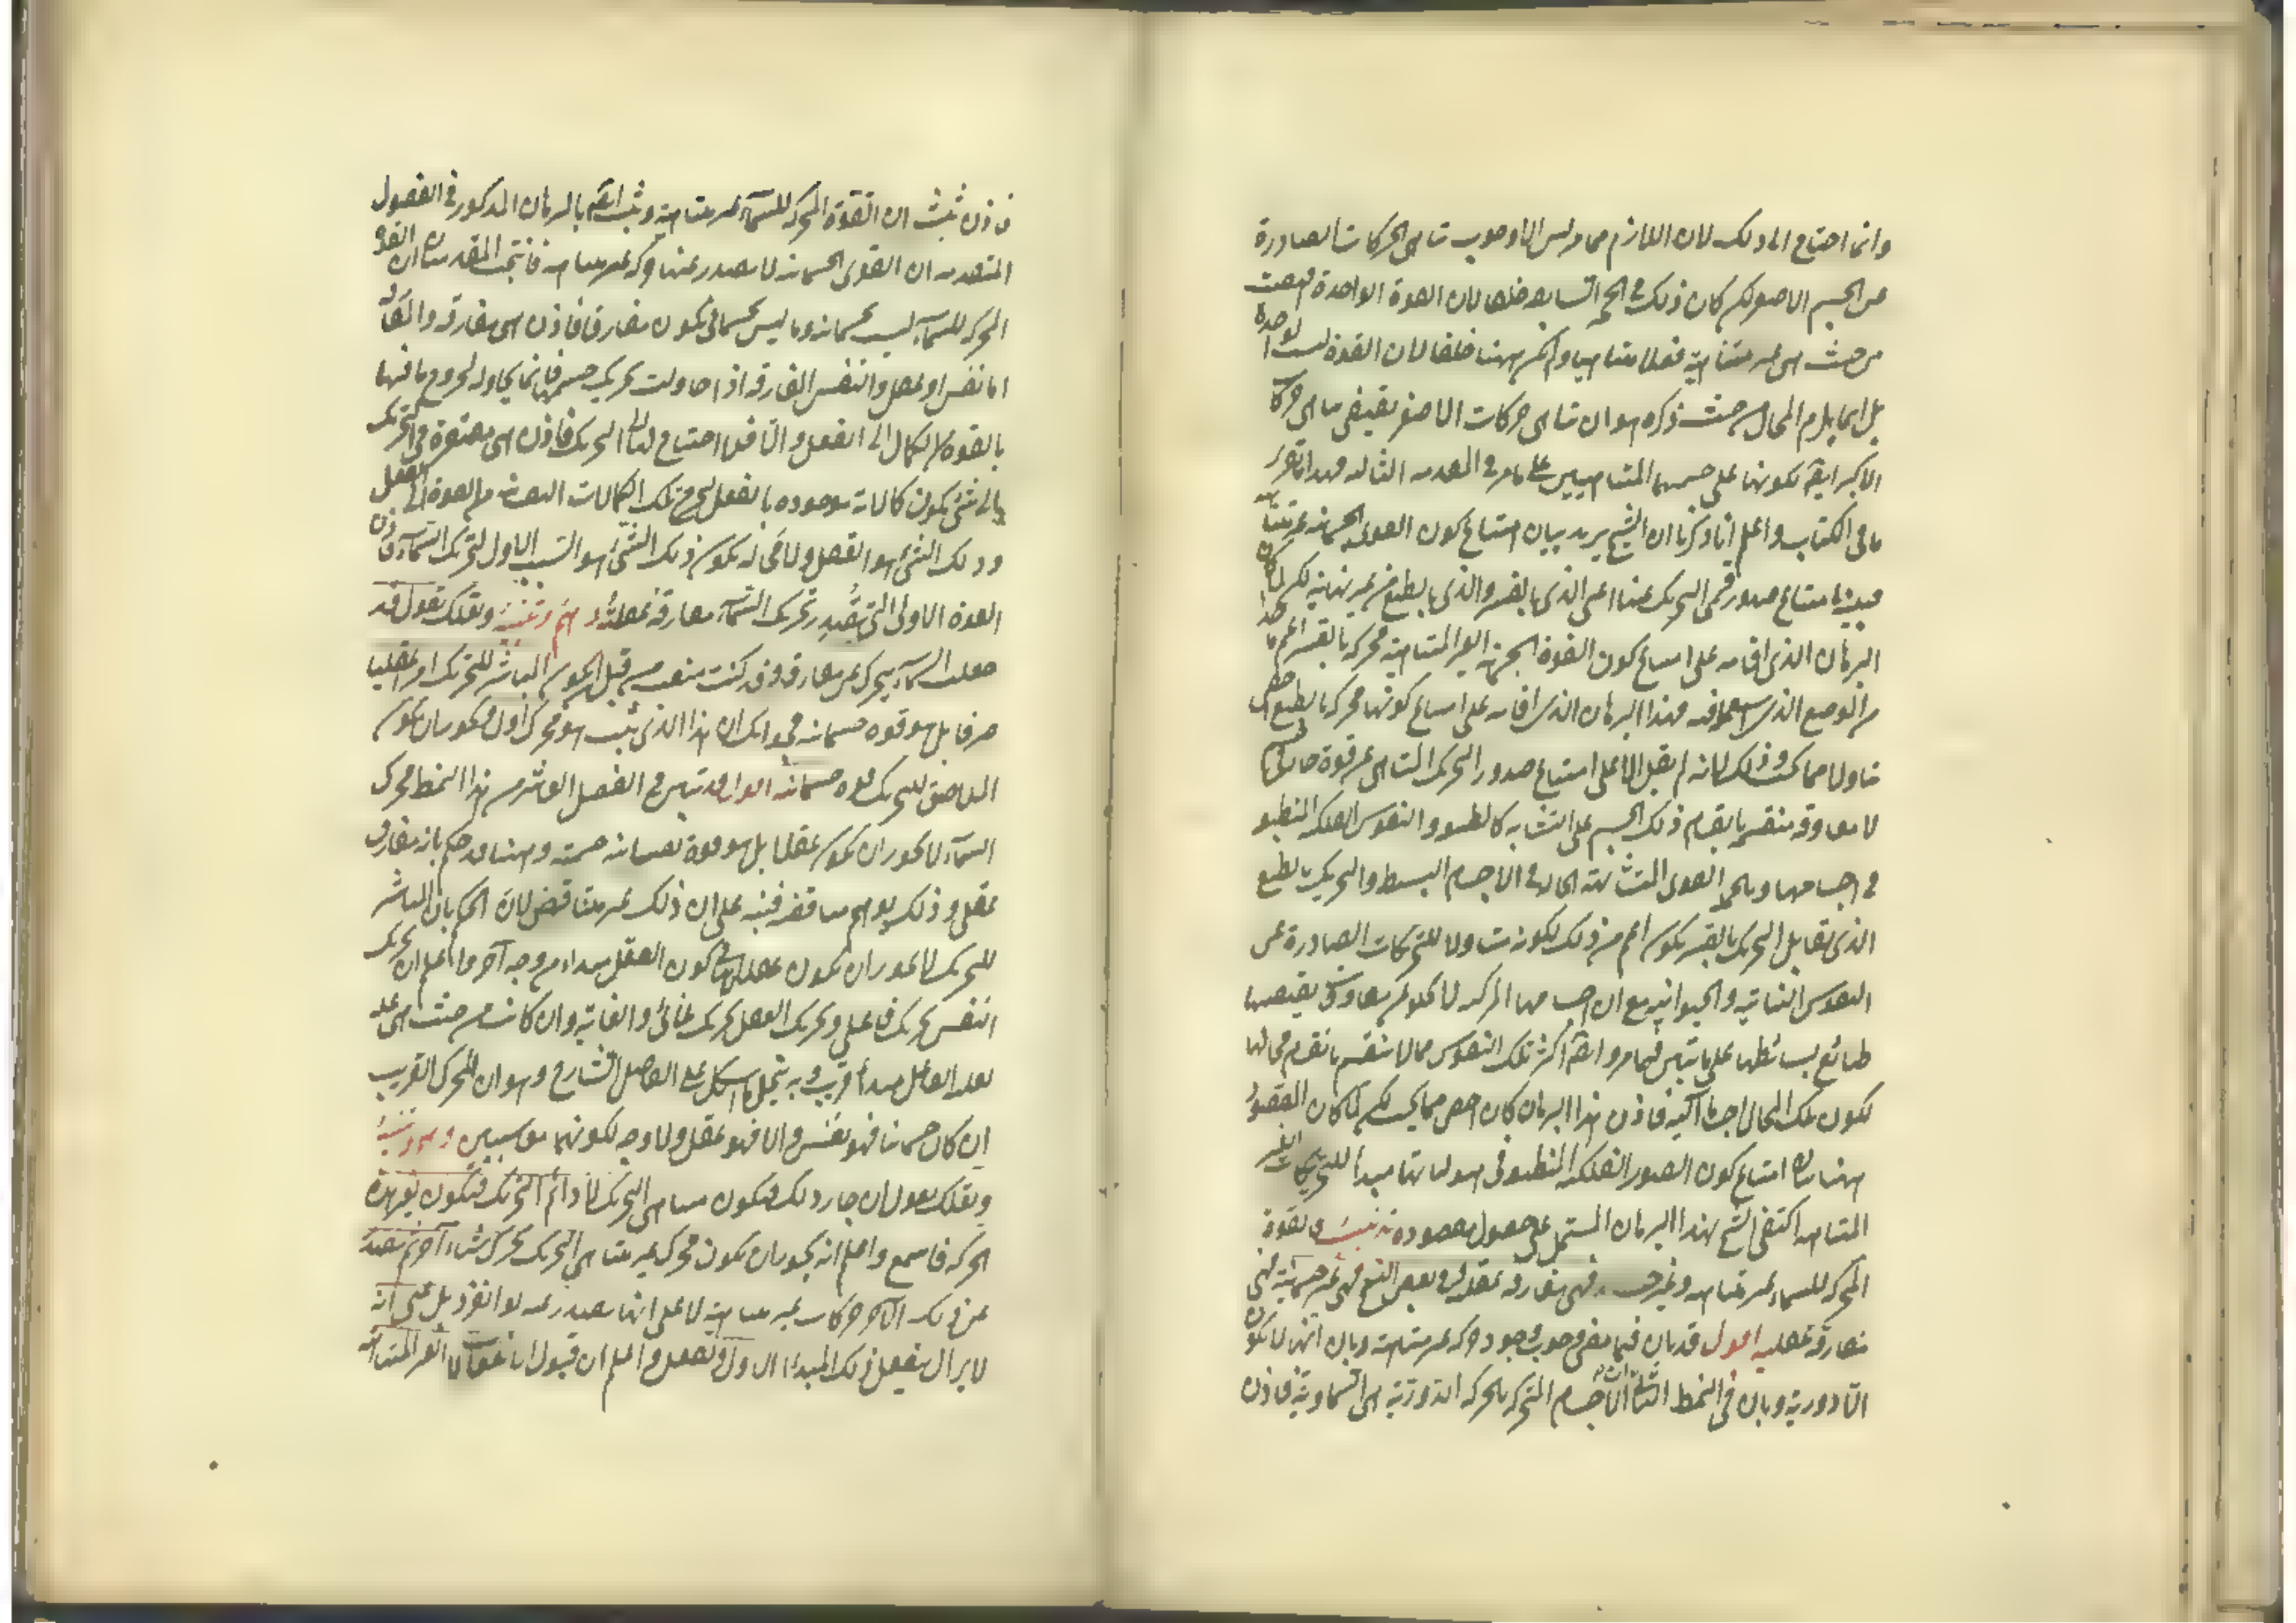 وانما احتاج الى ذلك لان اللازم مما مر ليس الا وجوب تناهى الحركات الصادرة
عن الجسم الاصغر لكن كان ذلك فى الحجة السابعة خلفا لان القوة الواحدة فعلت
من حيث هى غير متناهية فعلا متناهيا ولم يكن ههنا خلفا لان القوة ليست واحدة
بل انما يلزم المحال من حيث ذكره وهو ان تناهى حركات الاصغر يقتضى تناهى حركات
الاكبر ايضا لكونها على نسبة جسميهما المتناهيين على ما مر فى المقدمة الثالثة فهذا تقرير
ما فى الكتاب واعلم انا ذكرنا ان الشيخ يريد بيان امتناع كون القوى الجسمانية غير متناهية
فبينه بامتناع صدور قسمى التحريك عنها اعنى الذى بالقسر والذى بالطبع من غير نهاية لكن لما كان
البرهان الذى اقامه على امتناع كون القوة الجرمية الغير المتناهية محركة بالقسر اعم ماخذا
من الموضع الذى استعمله فيه فهذا البرهان الذى اقامه على امتناع كونها محركة بالطبع اخص
تناولا مما يجب وذلك لانه لم يقل الا على امتناع صدور التحريك الغير المتناهى عن قوة حالة فى جسم
لا معاوق فيه منقسمة بانقسام ذلك الجسم على التشابه كالطبيعة والنفوس الفلكية المنطبعة
فى اجسامها وبالجملة القوى المتشابهة الحالة فى الاجسام البسيطة والتحريك بالطبع
الذى يقابل التحريك بالقسر يكون اعم من ذلك لكونه متناولا للتحريكات الصادرة عن
النفوس النباتية والحيوانية مع ان اجسامها المركبة لا تخلو عن معاوق يقتضيها
طبائع بسائطها على ما تبين فيما مر وايضا اكثر تلك النفوس مما لا ينقسم بانقسام محالها
لكون تلك المحال اجساما آلية فاذن هذا البرهان كان اخص مما يجب لكن لما كان المقصود
ههنا بيان امتناع كون الصور الفلكية المنطبعة فى هيولياتها مبدأ للتحريكات الغير
المتناهية اكتفى الشيخ بهذا البرهان المشتمل على حصول مقصوده تذنيب فالقوة
المحركة للسماء غير متناهية وغير جسمانية فهى مفارقة عقلية وفى بعض النسخ فهى غير جسمية فهى
مفارقة عقلية اقول قد بان فيما مضى وجوب وجود حركة غير متناهية وبان انها لا تكون
الا دورية وبان فى النمط الثانى ان الاجسام المتحركة بالحركة الدورية هى السماوية فاذن
فاذن ثبت ان القوة المحركة للسماء غير متناهية وثبت ايضا بالبرهان المذكور فى الفصول
المتقدمة ان القوى الجسمانية لا يصدر عنها حركة غير متناهية فانتجت المقدمتان ان القوة
المحركة للسماء ليست بجسمانية وما ليس بجسمانى يكون مفارقا فاذن هى مفارقة والمفارق
اما نفس او عقل والنفس المفارقة اذا حاولت تحريك جسم فانما يحاوله لخروج ما فيها
بالقوة من الكمال الى الفعل والا فلا احتياج لها الى التحريك فاذن هى مفتقرة فى التحريك
الى شئ يكون كمالاته موجودة بالفعل ليخرج تلك الكمالات النفسية من القوة الى الفعل
وذلك الشئ هو العقل ولا محالة يكون ذلك الشئ هو السبب الاول لتحريك السماء فاذن
القوة الاولى التى تقيد تحريك السماء مفارقة عقلية وهم وتنبيه ولعلك تقول قد
جعلت السماء يتحرك عن مفارق وقد كنت منعت من قبل ان يكون المباشر للتحريك امرا عقليا
صرفا بل هو قوة جسمانية فجوابك ان هذا الذى ثبت هو محرك اول ويجوز ان يكون
الملاصق للتحريك قوة جسمانية اقول قد تبين فى الفصل العاشر من هذا النمط محرك
السماء لا يجوز ان يكون عقلا بل هو قوة نفسانية جسمية وههنا قد حكم بانه مفارق
عقلى وذلك يوهم مناقضة فنبه على ان ذلك غير متناقض لان الحكم بان المباشر
للتحريك لا يجوز ان يكون عقلا لا ينافى كون العقل مبداء من وجه آخر واعلم ان تحريك
النفس تحريك فاعلى وتحريك العقل تحريك غائى والغاية وان كانت من حيث هى علة
لعلة الفاعل مبدأ قريب وبه ينحل ما اشكل على الفاضل الشارح وهو ان المحرك القريب
ان كان جسمانيا فهو نفس والا فهو عقل ولا وجه لكونهما معا سببين وهم وتنبيه
ولعلك تقول ان جاز ذلك فيكون متناهى التحريك لا دائم التحريك فيكون لغير هذه
الحركة فاسمع واعلم انه يجوز ان يكون محرك غير متناهى التحريك يحرك شيئا آخر ثم يصدر
عن ذلك الآخر حركات غير متناهية لا على انها تصدر عنه لو انفرد بل على انه
لا يزال ينفعل عن ذلك المبدأ الاول ويفعل واعلم ان قبول الانفعالات الغير المتناهية